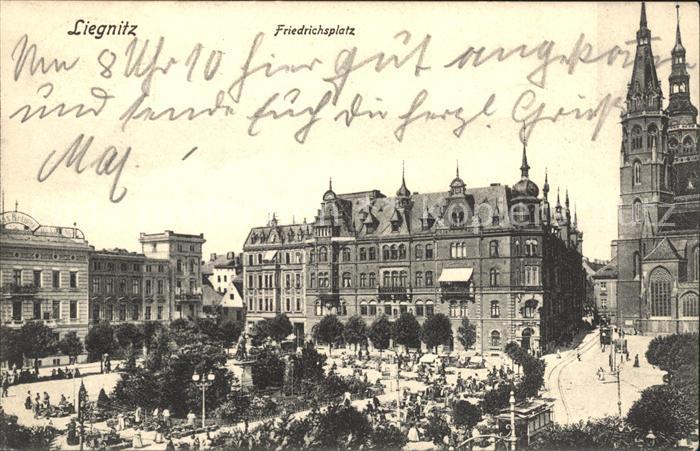 Liegnitz Friedrichsplatz
Um 8 Uhr 10 hier gut angekom̄en
und sende Euch die herzl. Grüße
Max.